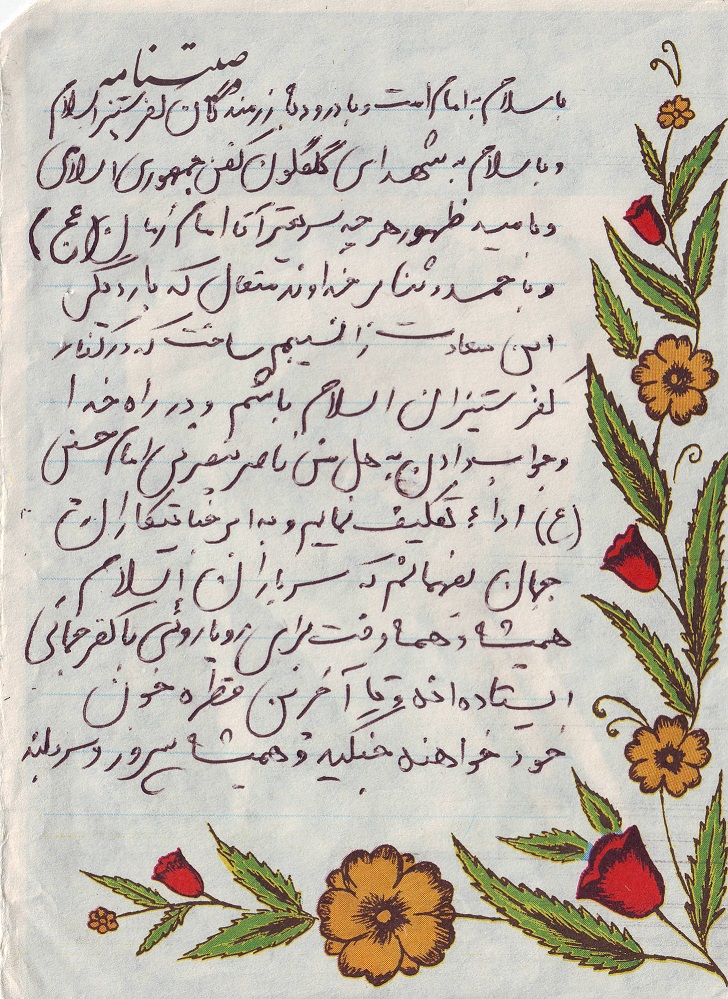 وصیتنامه
با سلام به امام امت و با درود به رزمندگان کفرستیز اسلام
و با سلام به شهدای گلگون کفن جمهوری اسلامی
و به امید ظهور هر چه سریعتر آقا امام زمان (عج)
و با حمد و ثنا بر خداوند متعال که بار دیگر
این سعادت را نسیبم ساخت که در کنار
کفر ستیزان اسلام باشم و در راه خدا
و جواب دادن به هل من ناصر ینصرنی امام حسین
(ع) اداء تکلیف نمایم و به این جنایتکاران
جهان بفهمانم که سربازان اسلام
همیشه و همه وقت برای رویاروئی با کفر جهانی
ایستاده‌اند و تا آخرین قطره خون
خود خواهند جنگید و همیشه پیروز و سربلند